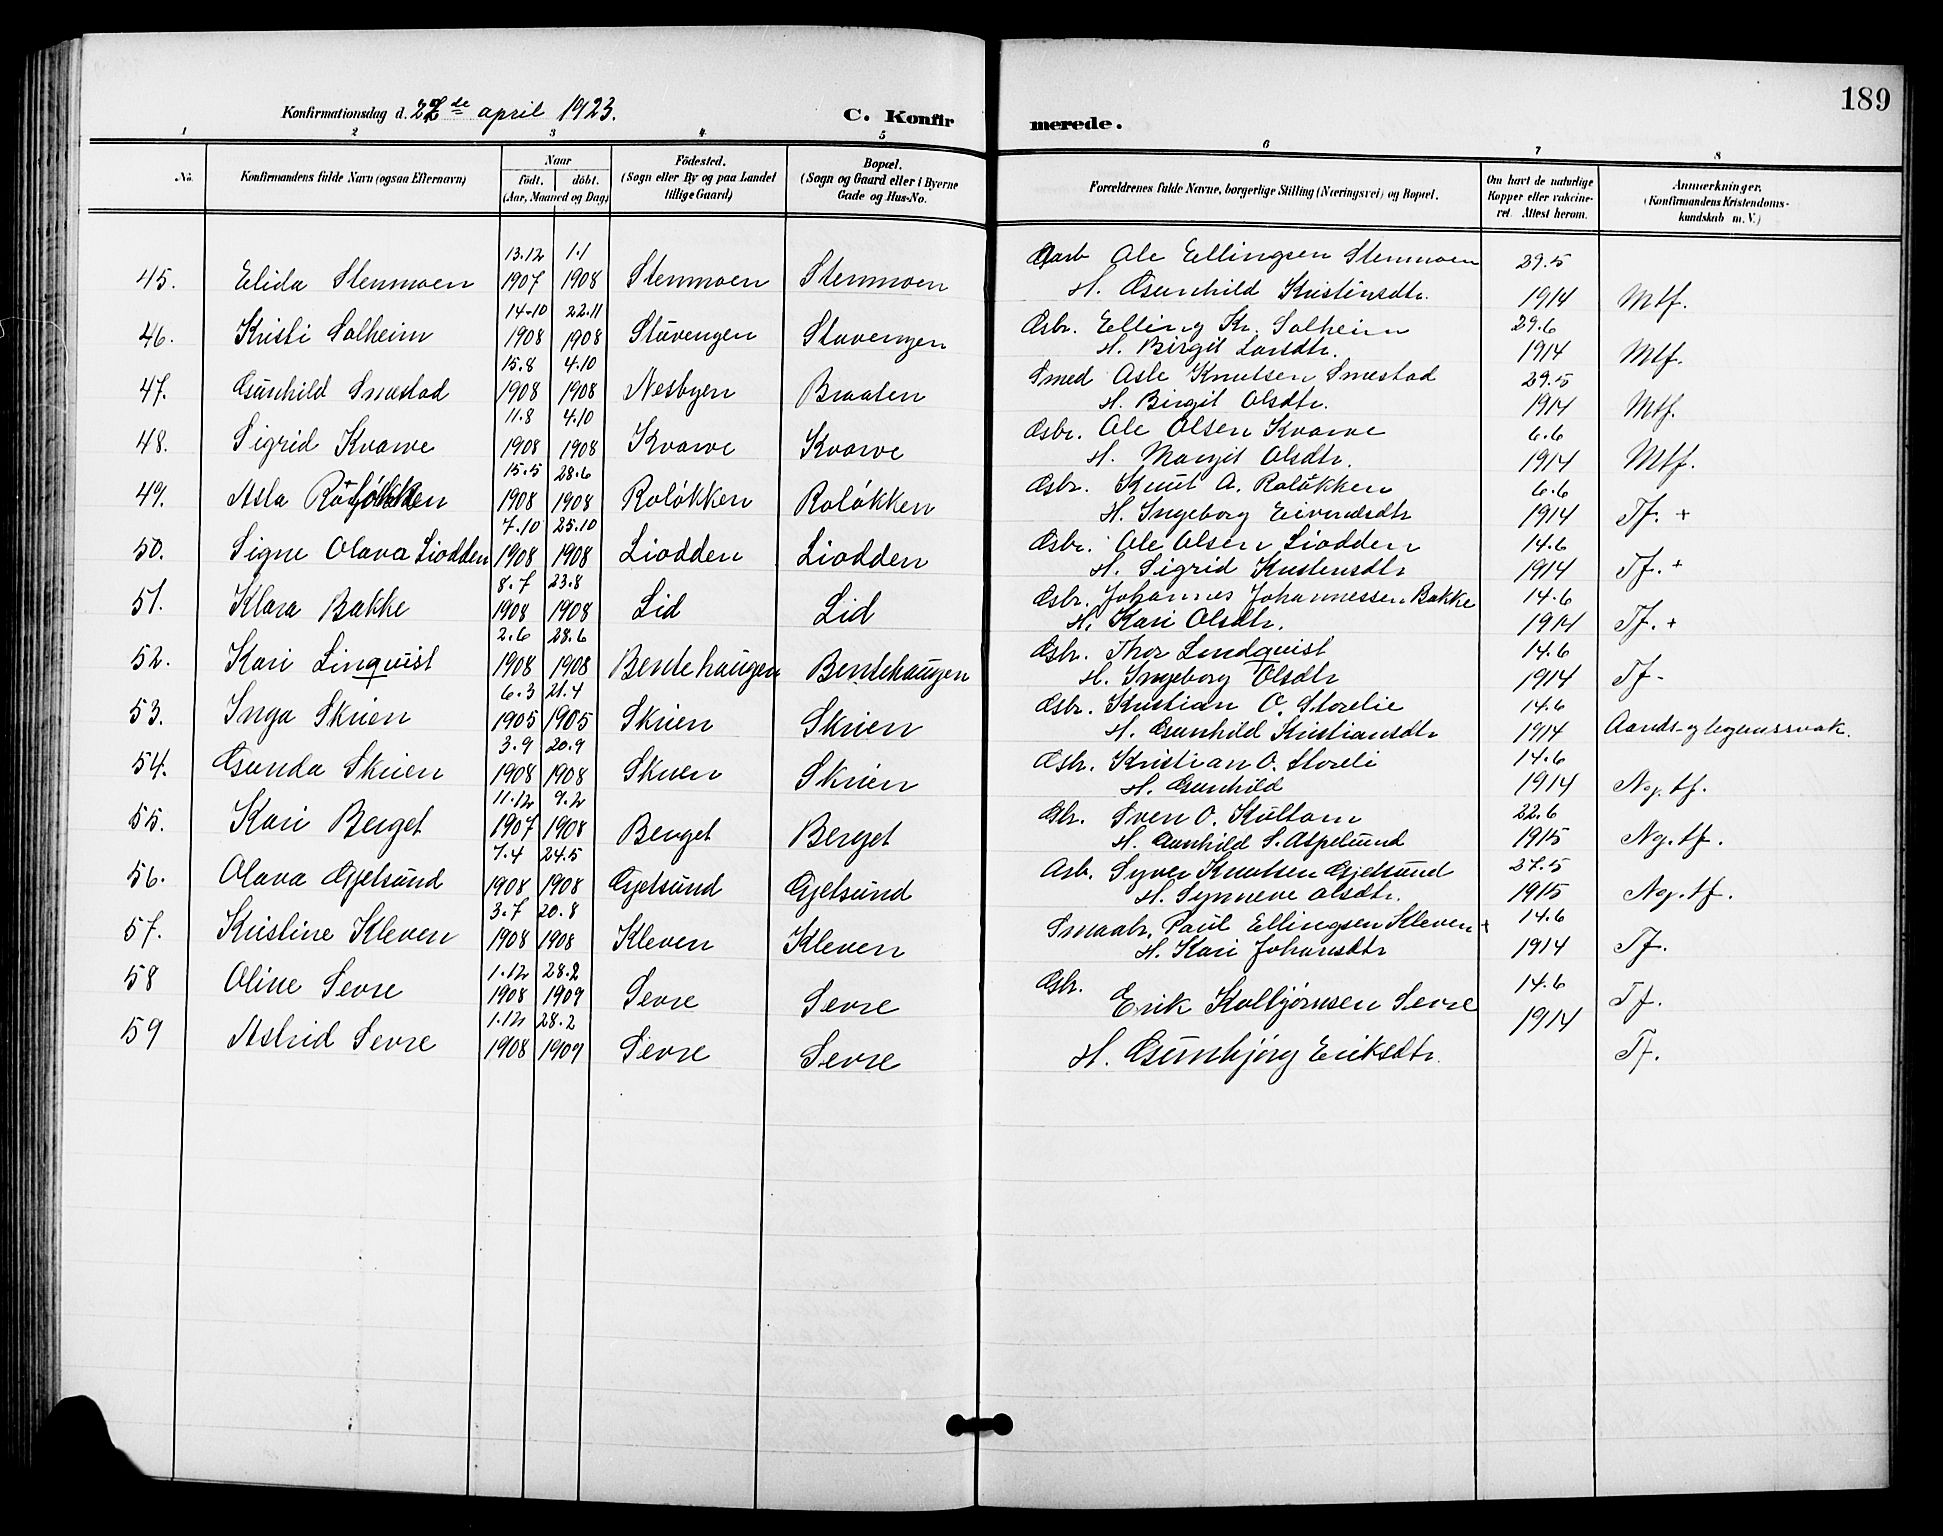 189
Konfirmationsdag d. 22de april 1923. C. Konfirmerede.
1 2 3 4 5 6 7 8
No. Konfirmandens fulde Navn (ogsaa Efternavn) Naar födt. döbt. (Aar, Maaned og Dag) Födested. (Sogn eller By og paa Landet tillige Gaard) Bopæl. (Sogn og Gaard eller i Byerne Gade og Hus-No. Forældrenes fulde Navne, borgerlige Stilling (Næringsvei) og Bopæl. Om havt de naturlige Kopper eller vakcineret. Attest herom. Anmærkninger. (Konfirmandens Kristendomskundskab m. V.)
13.12 1.1 Ole Ellingsen Stenmoen 29.5
45. Elida Stenmoen 1907 1908 Stenmoen Stenmoen H. Gunhild Kristensdtr. 1914 Mtf.
14.10 22.11 Gbr. Elling Kr. Solheim 29.6
46. Kristi Solheim 1908 1908 Stavengen Stavengen H. Birgit Larsdtr. 1914 Mtf.
15.8 4.10 Smed Asle Knutsen Smestad 29.5
47. Gunhild Smestad 1908 1908 Nesbyen Braaten H. Birgit Olsdtr. 1914 Mtf.
11.8 4.10 Gbr. Ole Olsen Kvarve 6.6
48. Sigrid Kvarve 1908 1908 Kvarve Kvarve H. Margit Olsdtr. 1914 Mtf.
15.5 28.6 Gbr. Knut A. Roløkken 6.6
49. Asla Roløkken 1908 1908 Roløkken Roløkken H. Ingeborg Eivendsdtr 1914 Tf. +
7.10 25.10 Gbr. Ole Olsen Liodden 14.6
50. Signe Olava Liodden 1908 1908 Liodden Liodden H. Sigrid Kristensdtr 1914 Tf. +
8.7 23.8 Gbr. Johannes Johannessen Bakke 14.6
51. Klara Bakke 1908 1908 Lid Lid H. Kari Olsdtr. 1914 Tf. +
2.6 28.6 Gbr. Thor Lindquist 14.6
52. Kari Linquist 1908 1908 Bentehaugen Bentehaugen H. Ingeborg Olsdtr 1914 Tf-
6.3 21.4 Gbr. Kristian O. Storelie 14.6
53. Inga Skrien 1905 1905 Skrien Skrien H. Gunhild Kristiansdtr 1914 Aands- og legemssvak.
3.9 20.9 Gbr. Kristian O. Storeli 14.6
54. Gunda Skrien 1908 1908 Skrien Skrien H. Gunhild 1914 Ng. tf.
11.12 9.2 Gbr. Sven O. Kultom 22.6
55. Kari Berget 1907 1908 Berget Berget H. Gunhild S. Aspelund 1915 Ng. tf.
7.4 24.5 Arb. Syver Knutsen Gjelsund 27.5
56. Olava Gjelsund 1908 1908 Gjelsund Gjelsund H. Synneve Olsdtr. 1915 Ng. tf.
3.7 20.8 Smaabr. Paul Ellingsen Kleven + 14.6
57. Kristine Kleven 1908 1908 Kleven Kleven H. Kari Johansdtr 1914 Tf.
1.12 28.2 Gbr. 14.6
58 Oline Sevre 1908 1909 Sevre Sevre Erik Kolbjørnsen Sevre 1914 Tf.
1.12 28.2
59 Astrid Sevre 1908 1909 Sevre Sevre H. Gunbjørg Eriksdtr. Tf.